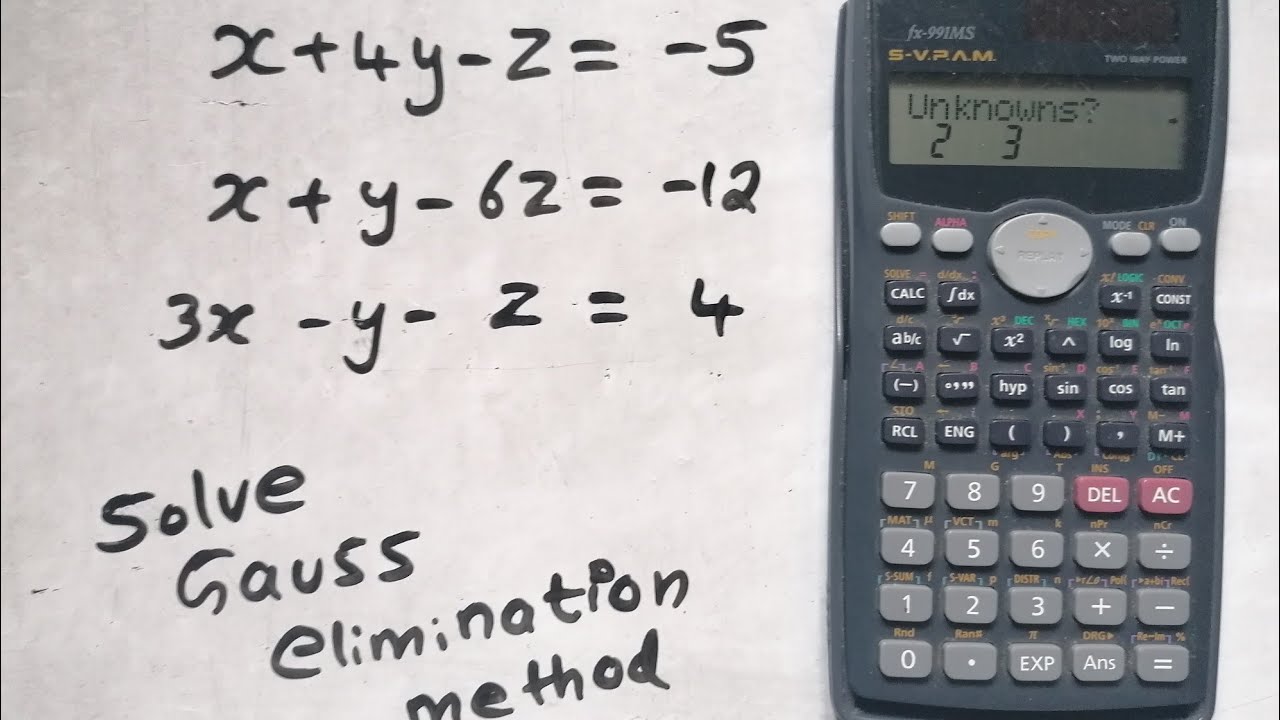 x+4y-z=-5
x+y-6z=-12
3x-y-z=4
Solve
Gauss
elimination
method
fx-991MS
S-V.P.A.M.
TWO WAY POWER
Unknowns?
2 3
SHIFT ALPHA MODE CLR ON
COPY
REPLAY
SOLVE = d/dx : x! LOGIC CONV
CALC ∫dx x-1 CONST
d/c DEC HEX BIN OCT
ab/c √ x² ^ log ln
A B C sin-1 D cos-1 E tan-1 F
(−) °,,, hyp sin cos tan
STO X Y M− M
RCL ENG ( ) , M+
arg Abs Conjg DT CL
M G T INS OFF
7 8 9 DEL AC
MAT μ VCT m k nPr nCr
4 5 6 × ÷
S-SUM f S-VAR p DISTR n r∠θ Pol( a+bi Rec(
1 2 3 + −
Rnd Ran# π DRG▶ Re-Im %
0 . EXP Ans =